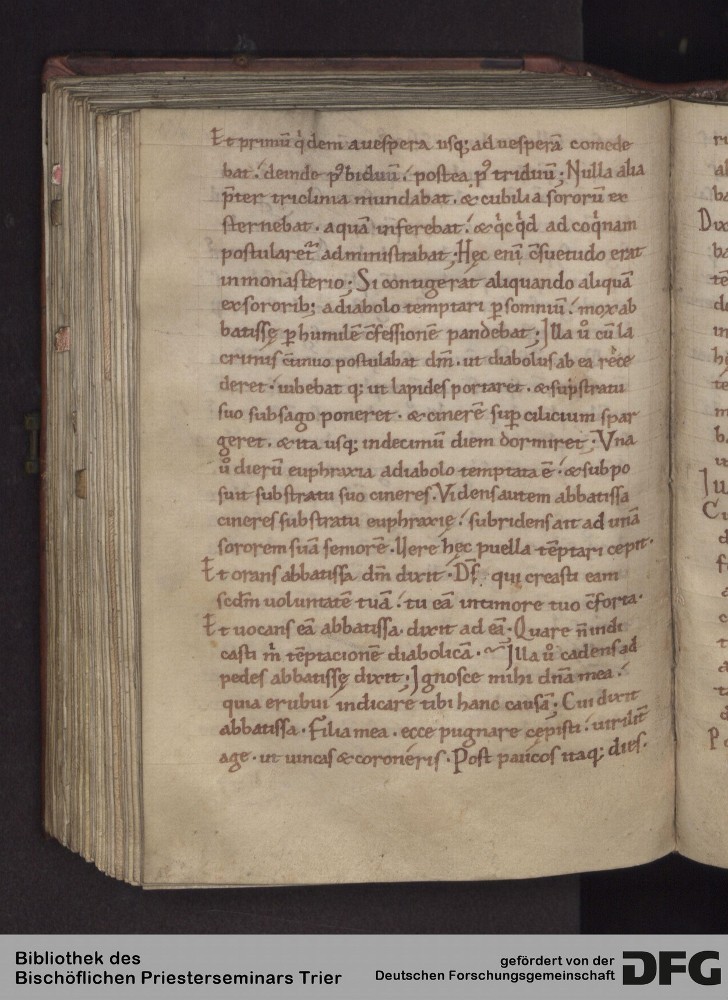 Et primū q̇dem a uespera usq; ad uesperā comede
bat. deinde p⁹ biduū. postea p⁹ triduū; Nulla alia
p̄ter triclinia mundabat. & cubilia sororū ex
sternebat. aquā inferebat. & q̇cq̇d ad coq̇nam
postularet̃ administrabat; Hęc eni c̄suetudo erat
in monasterio; Si contigerat aliquando aliquā
ex sororib; a diabolo temptari p̱ somniū. mox ab
batissę p̱ humilē c̄fessionē pandebat; Illa ů cū la
crimis c̄tinuo postulabat dm̄. ut diabolus ab ea rece
deret. iubebat q; ut lapides portaret. & sup̱ stratū
suo sub sago poneret. & cinerē sup̱ cilicium spar
geret. & ita usq; in decimū diem dormiret; Vna
ů dierū euphraxia a diabolo temptata ē. & sub po
suit sub stratu suo cineres. Videns autem abbatissa
cineres sub stratu euphraxię. subridens ait ad unā
sororem suā semorē. Uere hęc puella tēptari cepit.
Et orans abbatissa dm̄ dixit. Ds̄. qui creasti eam
scdm̄ uoluntatē tuā. tu eā in timore tuo c̄forta.
Et uocans eā abbatissa. dixit ad eā. Quare n̄ indi
casti m̄ tēptacionē diabolicā. Illa ů cadens ad
pedes abbatissę dixit; Ignosce mihi dn̄a mea.
quia erubui indicare tibi hanc causā; Cui dixit
abbatissa. Filia mea. ecce pugnare cępisti. uirilit̃
age. ut uincas & coroneris. Post paucos itaq; dies.
Bibliothek des
Bischöflichen Priesterseminars Trier
gefördert von der
Deutschen Forschungsgemeinschaft
DFG